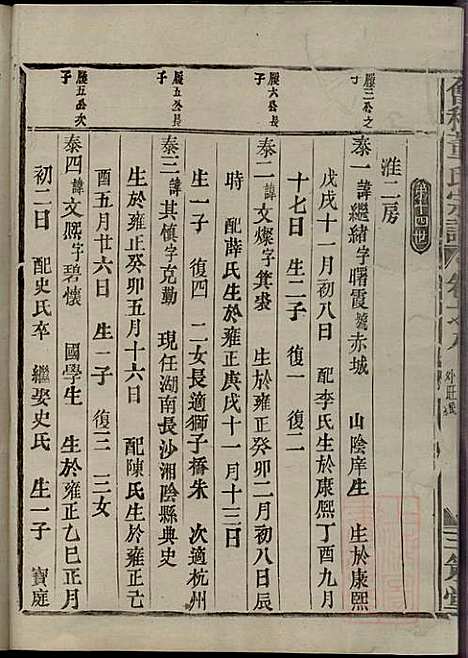 會稽董氏宗譜
淮二房
履三公之子
泰一 諱繼緒字曙霞號赤城 山陰庠生 生於康熙
戊戌十一月初八日 配李氏生於康熙丁酉九月
十七日 生二子 復一 復二
履六公長子
泰二 諱文燦字箕裘 生於雍正癸卯二月初八日辰
時 配薛氏生於雍正庚戌十一月十三日
生一子 復四 二女長適獅子橋朱 次適杭州
履五公長子
泰三 諱其慎字克勤 現任湖南長沙湘陰縣典史
生於雍正癸卯五月十六日 配陳氏生於雍正己
酉五月廿六日 生一子 復三 三女
履五公次子
泰四 諱文熙字碧懷 國學生 生於雍正乙巳正月
初二日 配史氏卒 繼娶史氏 生一子 寶庭